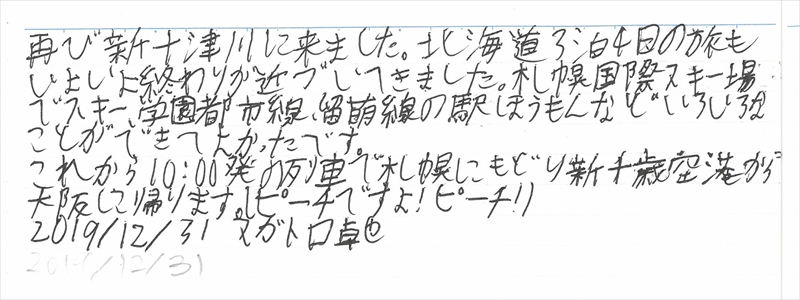 再び新十津川に来ました。北海道3泊4日の旅も
いよいよ終わりが近づいてきました。札幌国際スキー場
でスキー、学園都市線、留萌線の駅ほうもんなどいろいろな
ことができてよかったです。
これから10:00発の列車で札幌にもどり新千歳空港から
大阪に帰ります。(ピーチですよ!ピーチ!)
2019/12/31 スガトロ卓也
2019/12/31